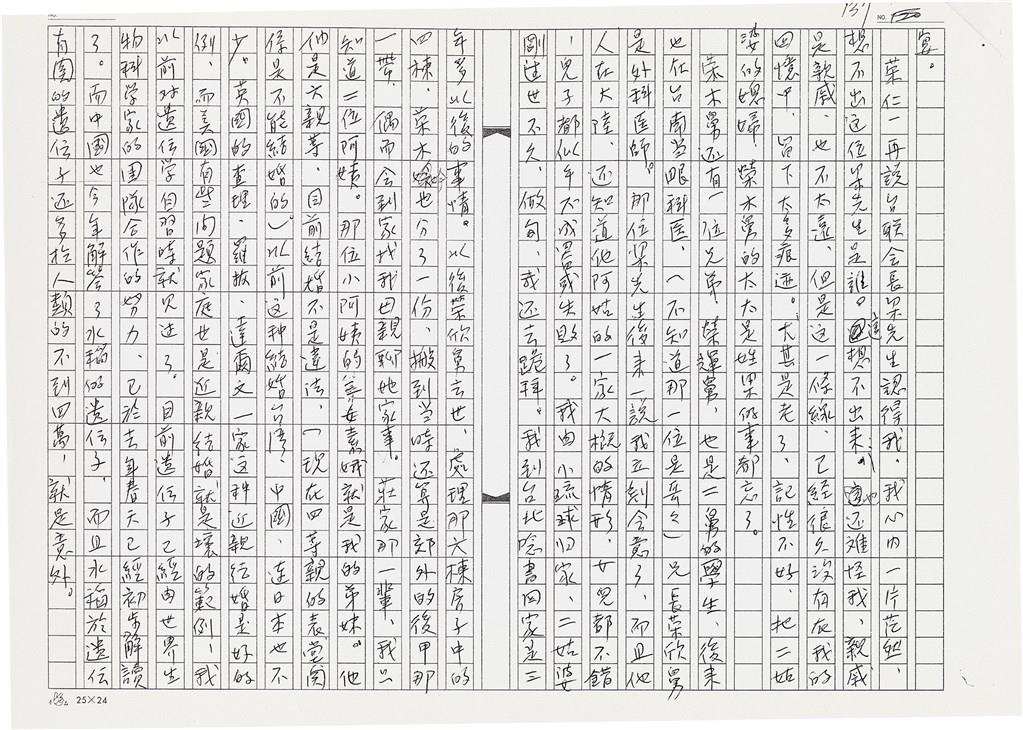 137
NO.
宴。
葉仁一再說台联会長梁先生認得我。我心內一片茫然，
想不出这位梁先生是誰。這想不出來，也还难怪我，親戚
是親戚，也不太遠，但是这一條線，已經很久沒有在我的
回憶中，留下太多痕迹。尤其是老了，記性不好，把二姑
婆的媳婦，榮木舅的太太是姓梁的事都忘了。
榮木舅还有一位兄弟，榮輝舅，也是二舅的學生，後來
也在台南当眼科医，（不知道那一位是岳々）兄長榮欣舅
是外科医師。那位梁先生後來一說我立刻会意了，而且他
人在大陸，还知道他阿姑的一家大概的情形，女兒都不錯
，兒子都似乎不成器或失敗了。我由小琉球归家，二姑婆
剛逝世不久，做旬，我还去跪拜。我到台北唸書回家是三
年多以後的事情。以後榮欣舅去世，處理那六棟房子中的
四棟，榮木妗也分了一份，搬到当時还算是郊外的後甲那
一帶，偶而会到家找我母親聊她家事。莊家那一輩，我只
知道二位阿姨。那位小阿姨的養女素娥就是我的弟妹。他
他是六親等，目前結婚不是違法，（現在四等親的表堂関
係是不能結婚的）以前这种結婚台湾、中國、連日本也不
少。英國的查理・羅拔・達爾文一家这种近親結婚是好的
例，而美國有些问題家庭也是近親結婚就是壞的範例，我
以前对遺伝学自習時就见过了。目前遺伝子已經由世界生
物科学家的团隊合作的努力，已於去年春天已經初步解讀
了。而中國也今年解謦了水稻的遺伝子，而且水稻於遺伝
有関的遺伝子还多於人類的不到四萬，就是意外。
25×24